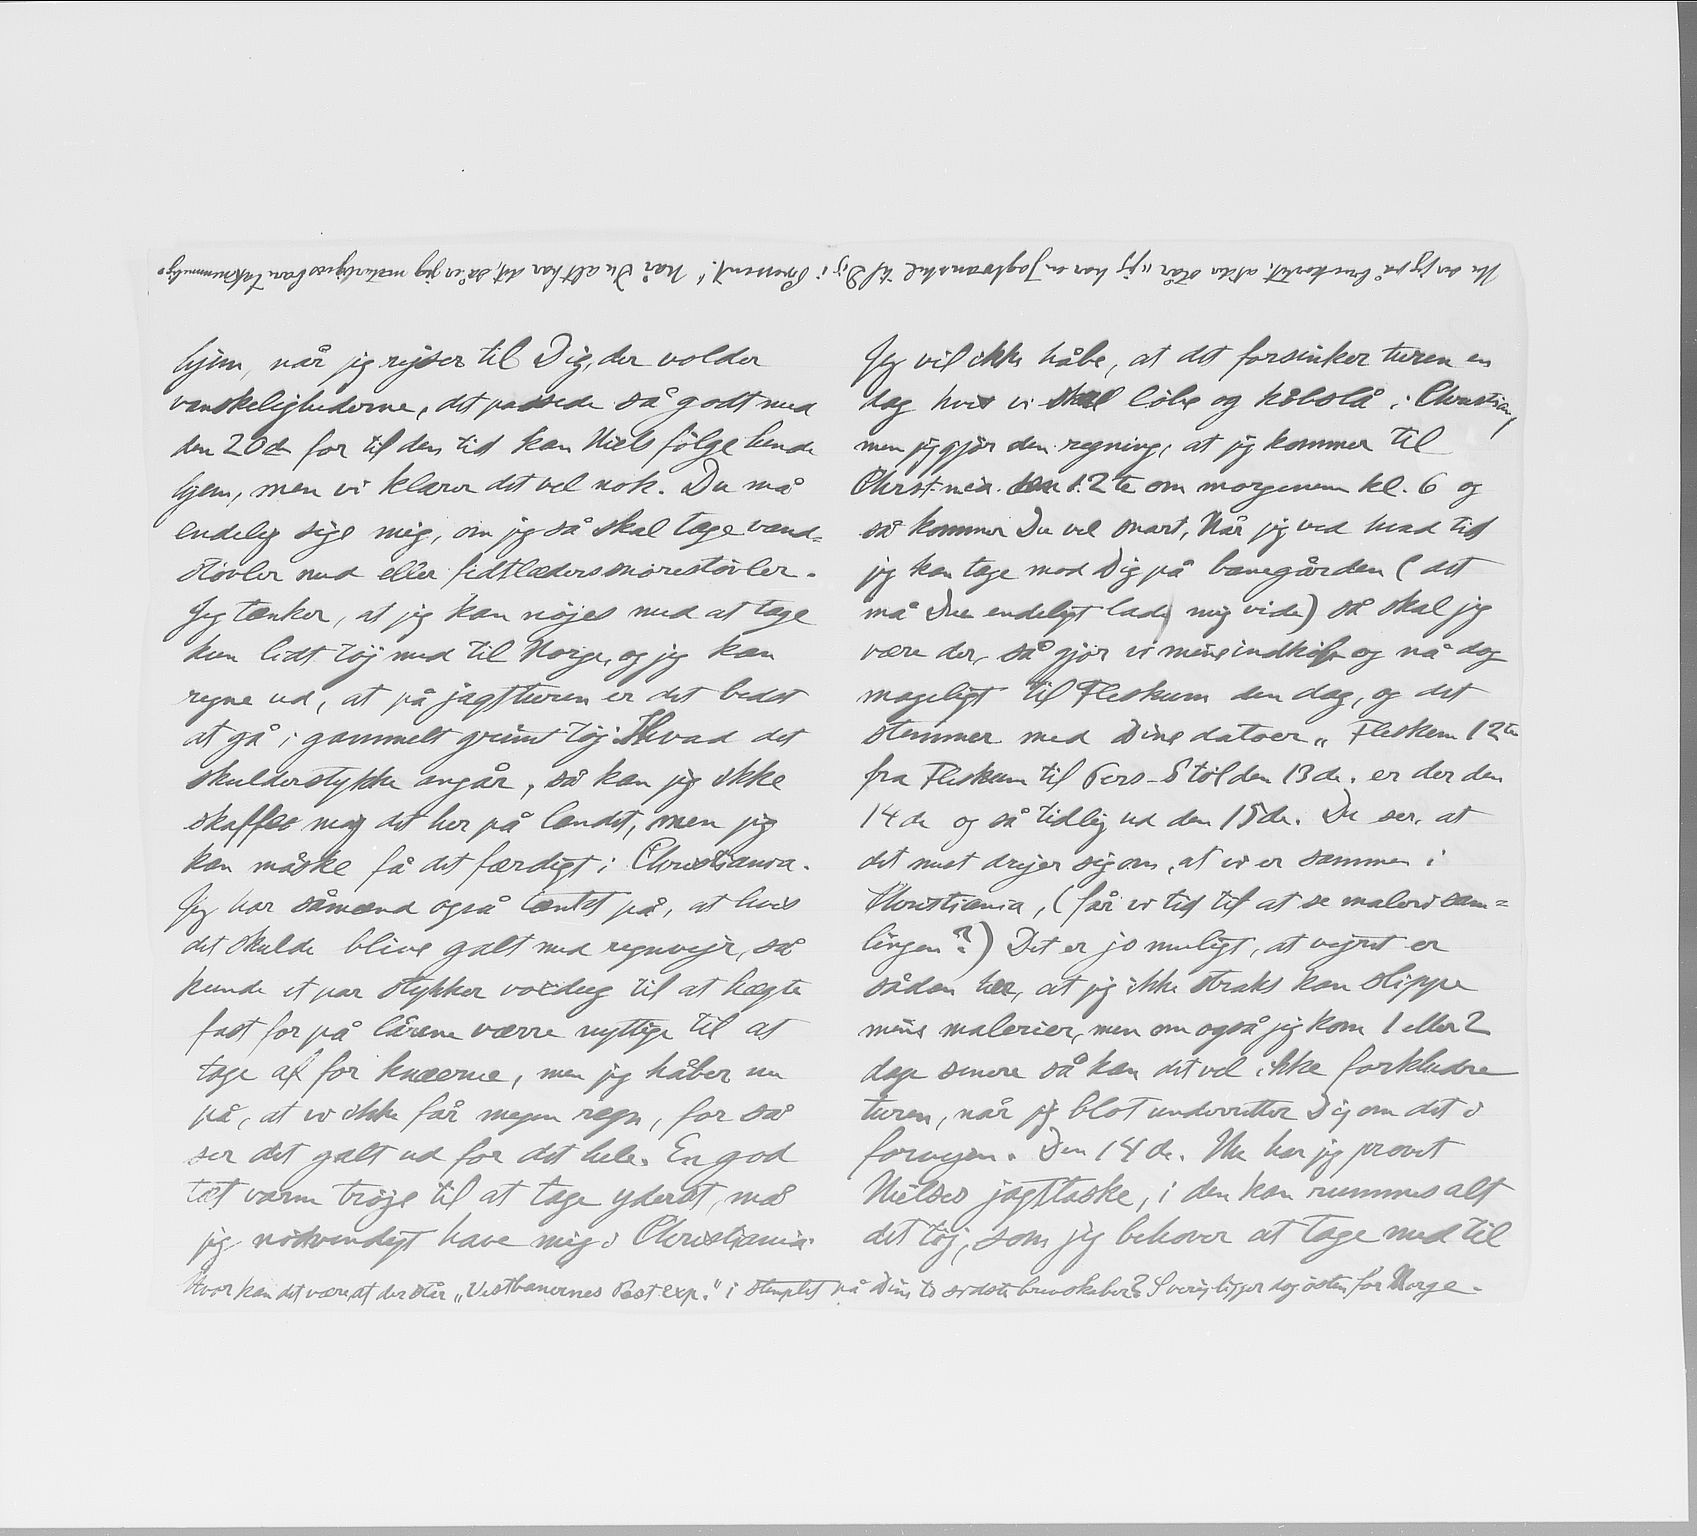 Nu ser jeg på brevkortet, at der står „jeg har en Jagtvæske til Dig i Present." Når Du alt har det, så er jeg naturligvis bare taknemmelig.
hjem, når jeg rejser til Dig, der volder
vanskelighederne, det passede så godt med
den 20de for til den tid kan Niels følge hende
hjem, men vi klarer det vel nok. Du må
endelig sige mig, om jeg så skal tage vand=
støvler med eller fedtlæderssnørestøvler.
Jeg tænker, at jeg kan nøjes med at tage
kun lidt tøj med til Norge, og jeg kan
regne ud, at på jagtturen er det bedst
at gå i gammelt grimt tøj. Hvad det
skulderstykke angår, så kan jeg ikke
skaffes mig det her på landet, men jeg
kan måske få det færdigt i Christiania.
Jeg har såmænd også tænkt på, at hvis
det skulde blive galt med regnvejr, så
kunde et par stykker voxdug til at hægte
fast for på lårene værre nyttige til at
tage af for knæerne, men jeg håber nu
på, at vi ikke får megen regn, for så
ser det galt ud for det hele. En god
tæt varm trøje til at tage yderst, må
jeg nødvendigt have mig i Christiania.
Hvor kan det være, at der står „Vestbanernes Postexp." i stemplet på Dine to sidste brevskaber? Sverig ligger dog østen for Norge.
Jeg vil ikke håbe, at det forsinker turen en
dag hvis vi skal løbe og købslå i Christiania,
men jeg gjør den regning, at jeg kommer til
Christiania den 12te om morgenen kl. 6 og
så kommer Du vel snart, Når jeg ved hvad tid
jeg kan tage mod Dig på banegården (det
må Due endeligt lade mig vide) så skal jeg
være der, så gjør vi mine indkøb og nå dog
mageligt til Fleskum den dag, og det
stemmer med Dine datoer „Fleskum 12te
fra Fleskum til Pers-Støl den 13de. er der den
14de og så tidlig ud den 15de. Du ser, at
det mest drejer sig om, at vi er sammen i
Christiania, (får vi tid til at se malerisam=
lingen?) Det er jo muligt, at vejret er
sådan her, at jeg ikke straks kan slippe
mine malerier, men om også jeg kom 1 eller 2
dage senere så kan det vel ikke forkludre
turen, når jeg blot underretter Dig om det i
forvejen. Den 14de. Nu har jeg prøvet
Nielses jagttaske, i den kan rummes alt
det tøj, som jeg behøver at tage med til